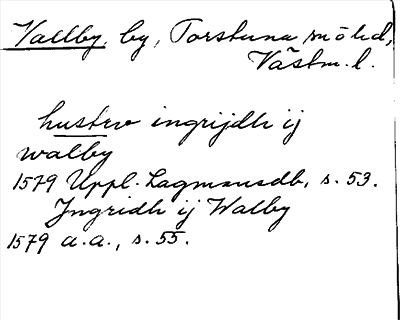 Vallby, by, Torstuna sn o hd,
Västm. l.
hustrv ingrijdh ij
walby
1579 Uppl. Lagmansdb, s. 53.
Jngridh ij Walby
1579 a.a., s. 55.